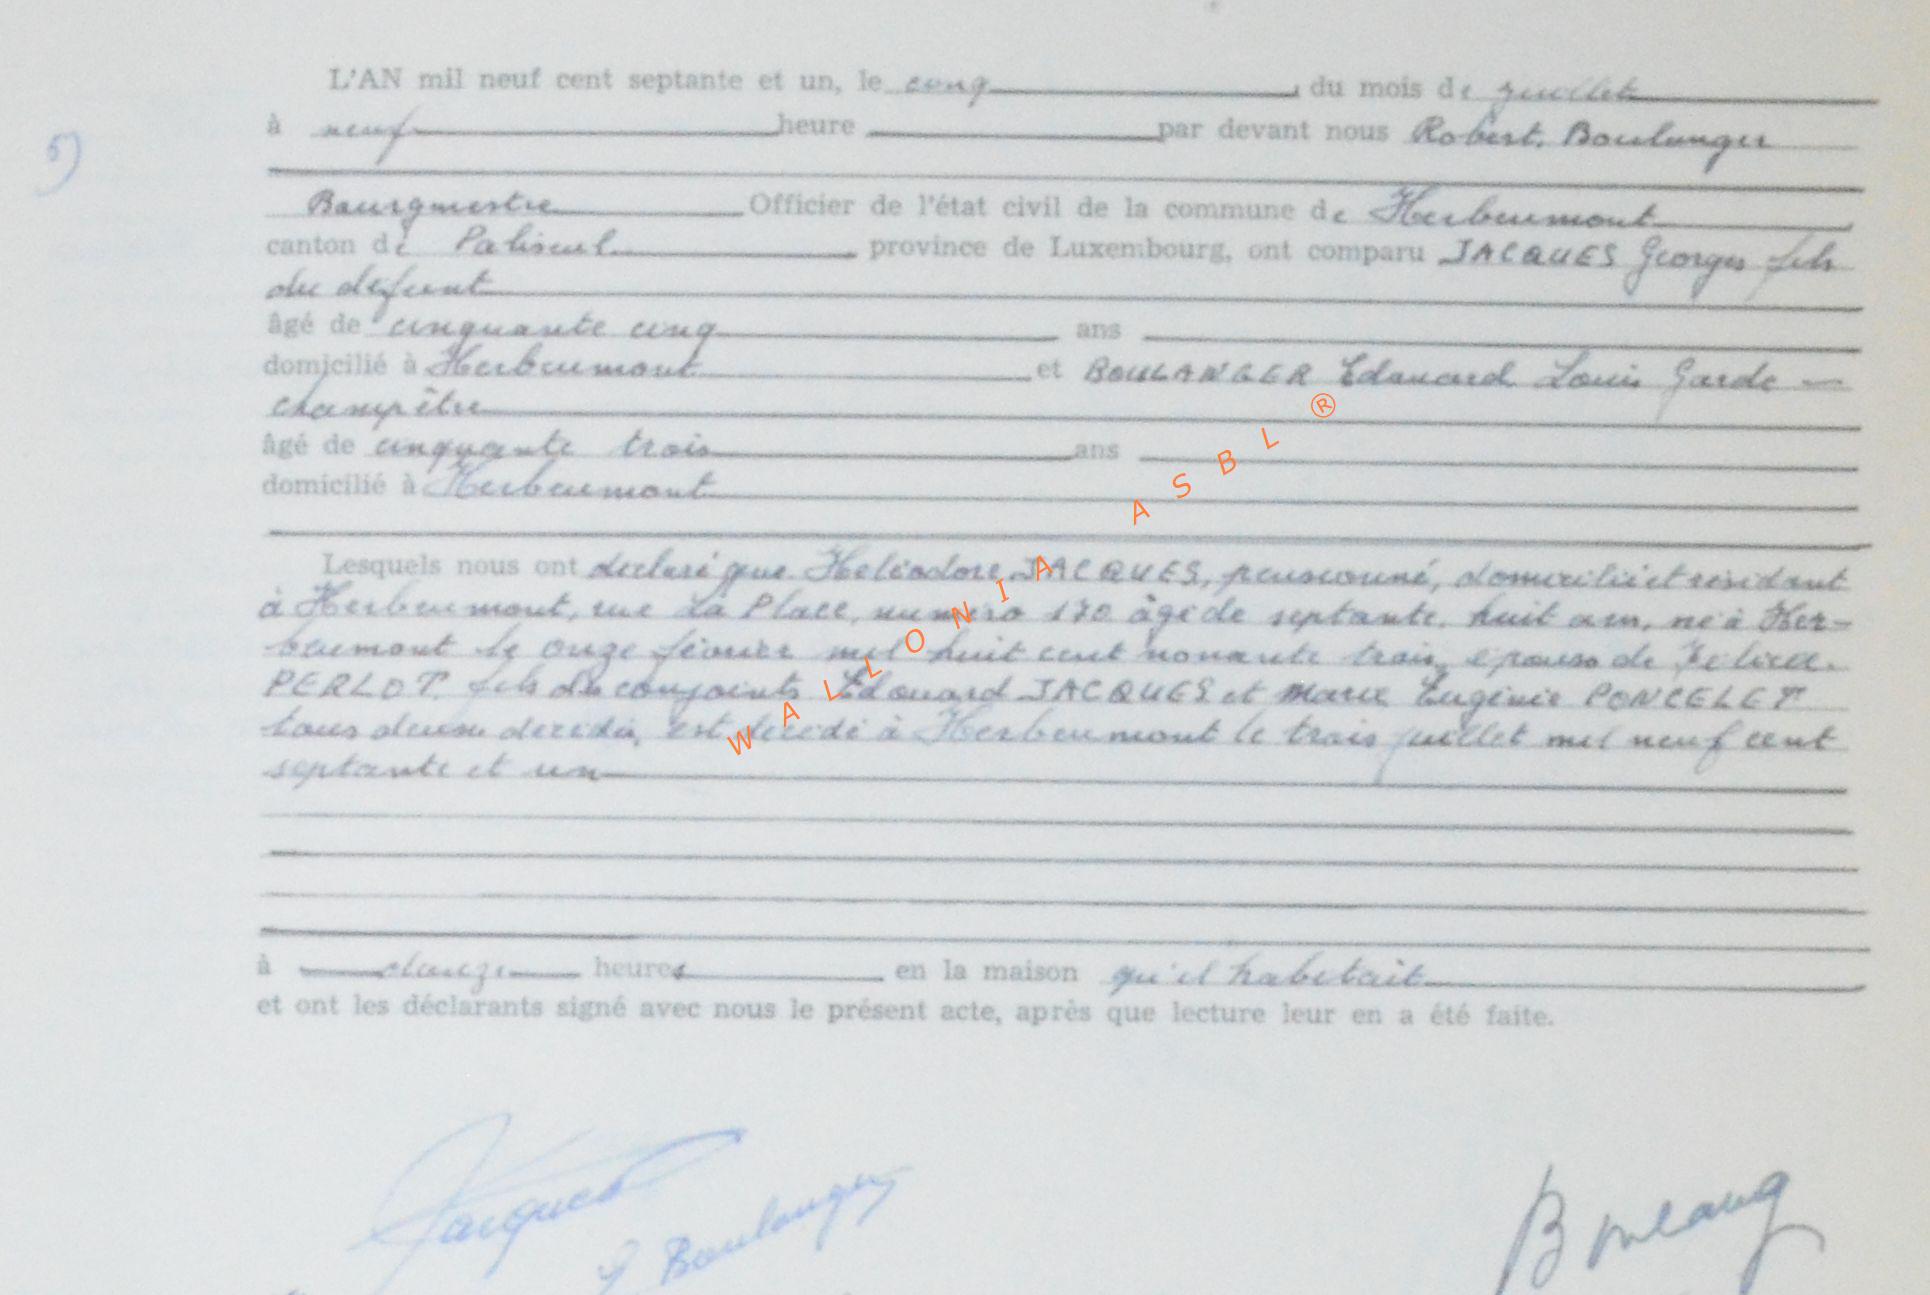 L'AN mil neuf cent septante et un, le cinq du mois de juillet
5)
à neuf heure par devant nous Robert Boulanger
Bourgmestre Officier de l'état civil de la commune de Herbeumont
canton de Paliseul province de Luxembourg, ont comparu JACQUES Georges fils
du defunt
âgé de cinquante cinq ans
domicilié à Herbeumont et BOULANGER Edouard Louis Garde
champêtre
âgé de cinquante trois ans
domicilié à Herbeumont
Lesquels nous ont declaré que Heliodore JACQUES, pensionné, domicilié et residant
à Herbeumont, rue La Place, numéro 170 âgé de septante huit ans, né à Her-
beumont le onze février mil huit cent nonante trois, epoux de
PERLOT fils des conjoints Edouard JACQUES et Marie Eugénie PONCELET
tous deux decedés, est decedé à Herbeumont le trois juillet mil neuf cent
septante et un
à douze heures en la maison qu'il habitait
et ont les déclarants signé avec nous le présent acte, après que lecture leur en a été faite.
Jacques
Boulanger
Boulang
WALLONIA ASBL ®